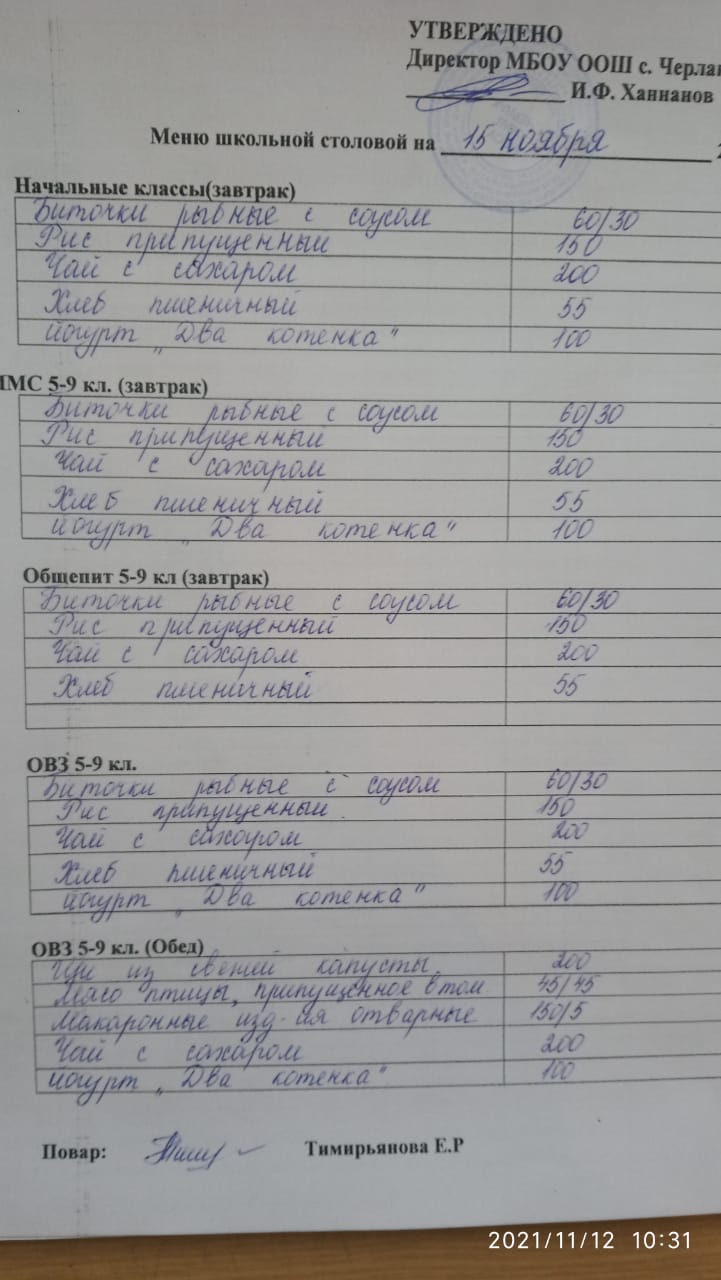 УТВЕРЖДЕНО
Директор МБОУ ООШ с. Черлак
И.Ф. Ханнанов
Меню школьной столовой на 15 ноября 2
Начальные классы(завтрак)
Биточки рыбные с соусом 60/30
Рис припущенный 150
Чай с сахаром 200
Хлеб пшеничный 55
йогурт „Два котенка" 100
ММС 5-9 кл. (завтрак)
Биточки рыбные с соусом 60/30
Рис припущенный 150
Чай с сахаром 200
Хлеб пшеничный 55
йогурт „Два котенка" 100
Общепит 5-9 кл (завтрак)
Биточки рыбные с соусом 60/30
Рис припущенный 150
Чай с сахаром 200
Хлеб пшеничный 55
ОВЗ 5-9 кл.
Биточки рыбные с соусом 60/30
Рис припущенный 150
Чай с сахаром 200
Хлеб пшеничный 55
йогурт „Два котенка" 100
ОВЗ 5-9 кл. (Обед)
Щи из свежей капусты 200
Мясо птицы, припущенное в том 45/45
Макаронные изд-ия отварные 150/5
Чай с сахаром 200
йогурт „Два котенка" 100
Повар: Тимирьянова Е.Р
2021/11/12 10:31